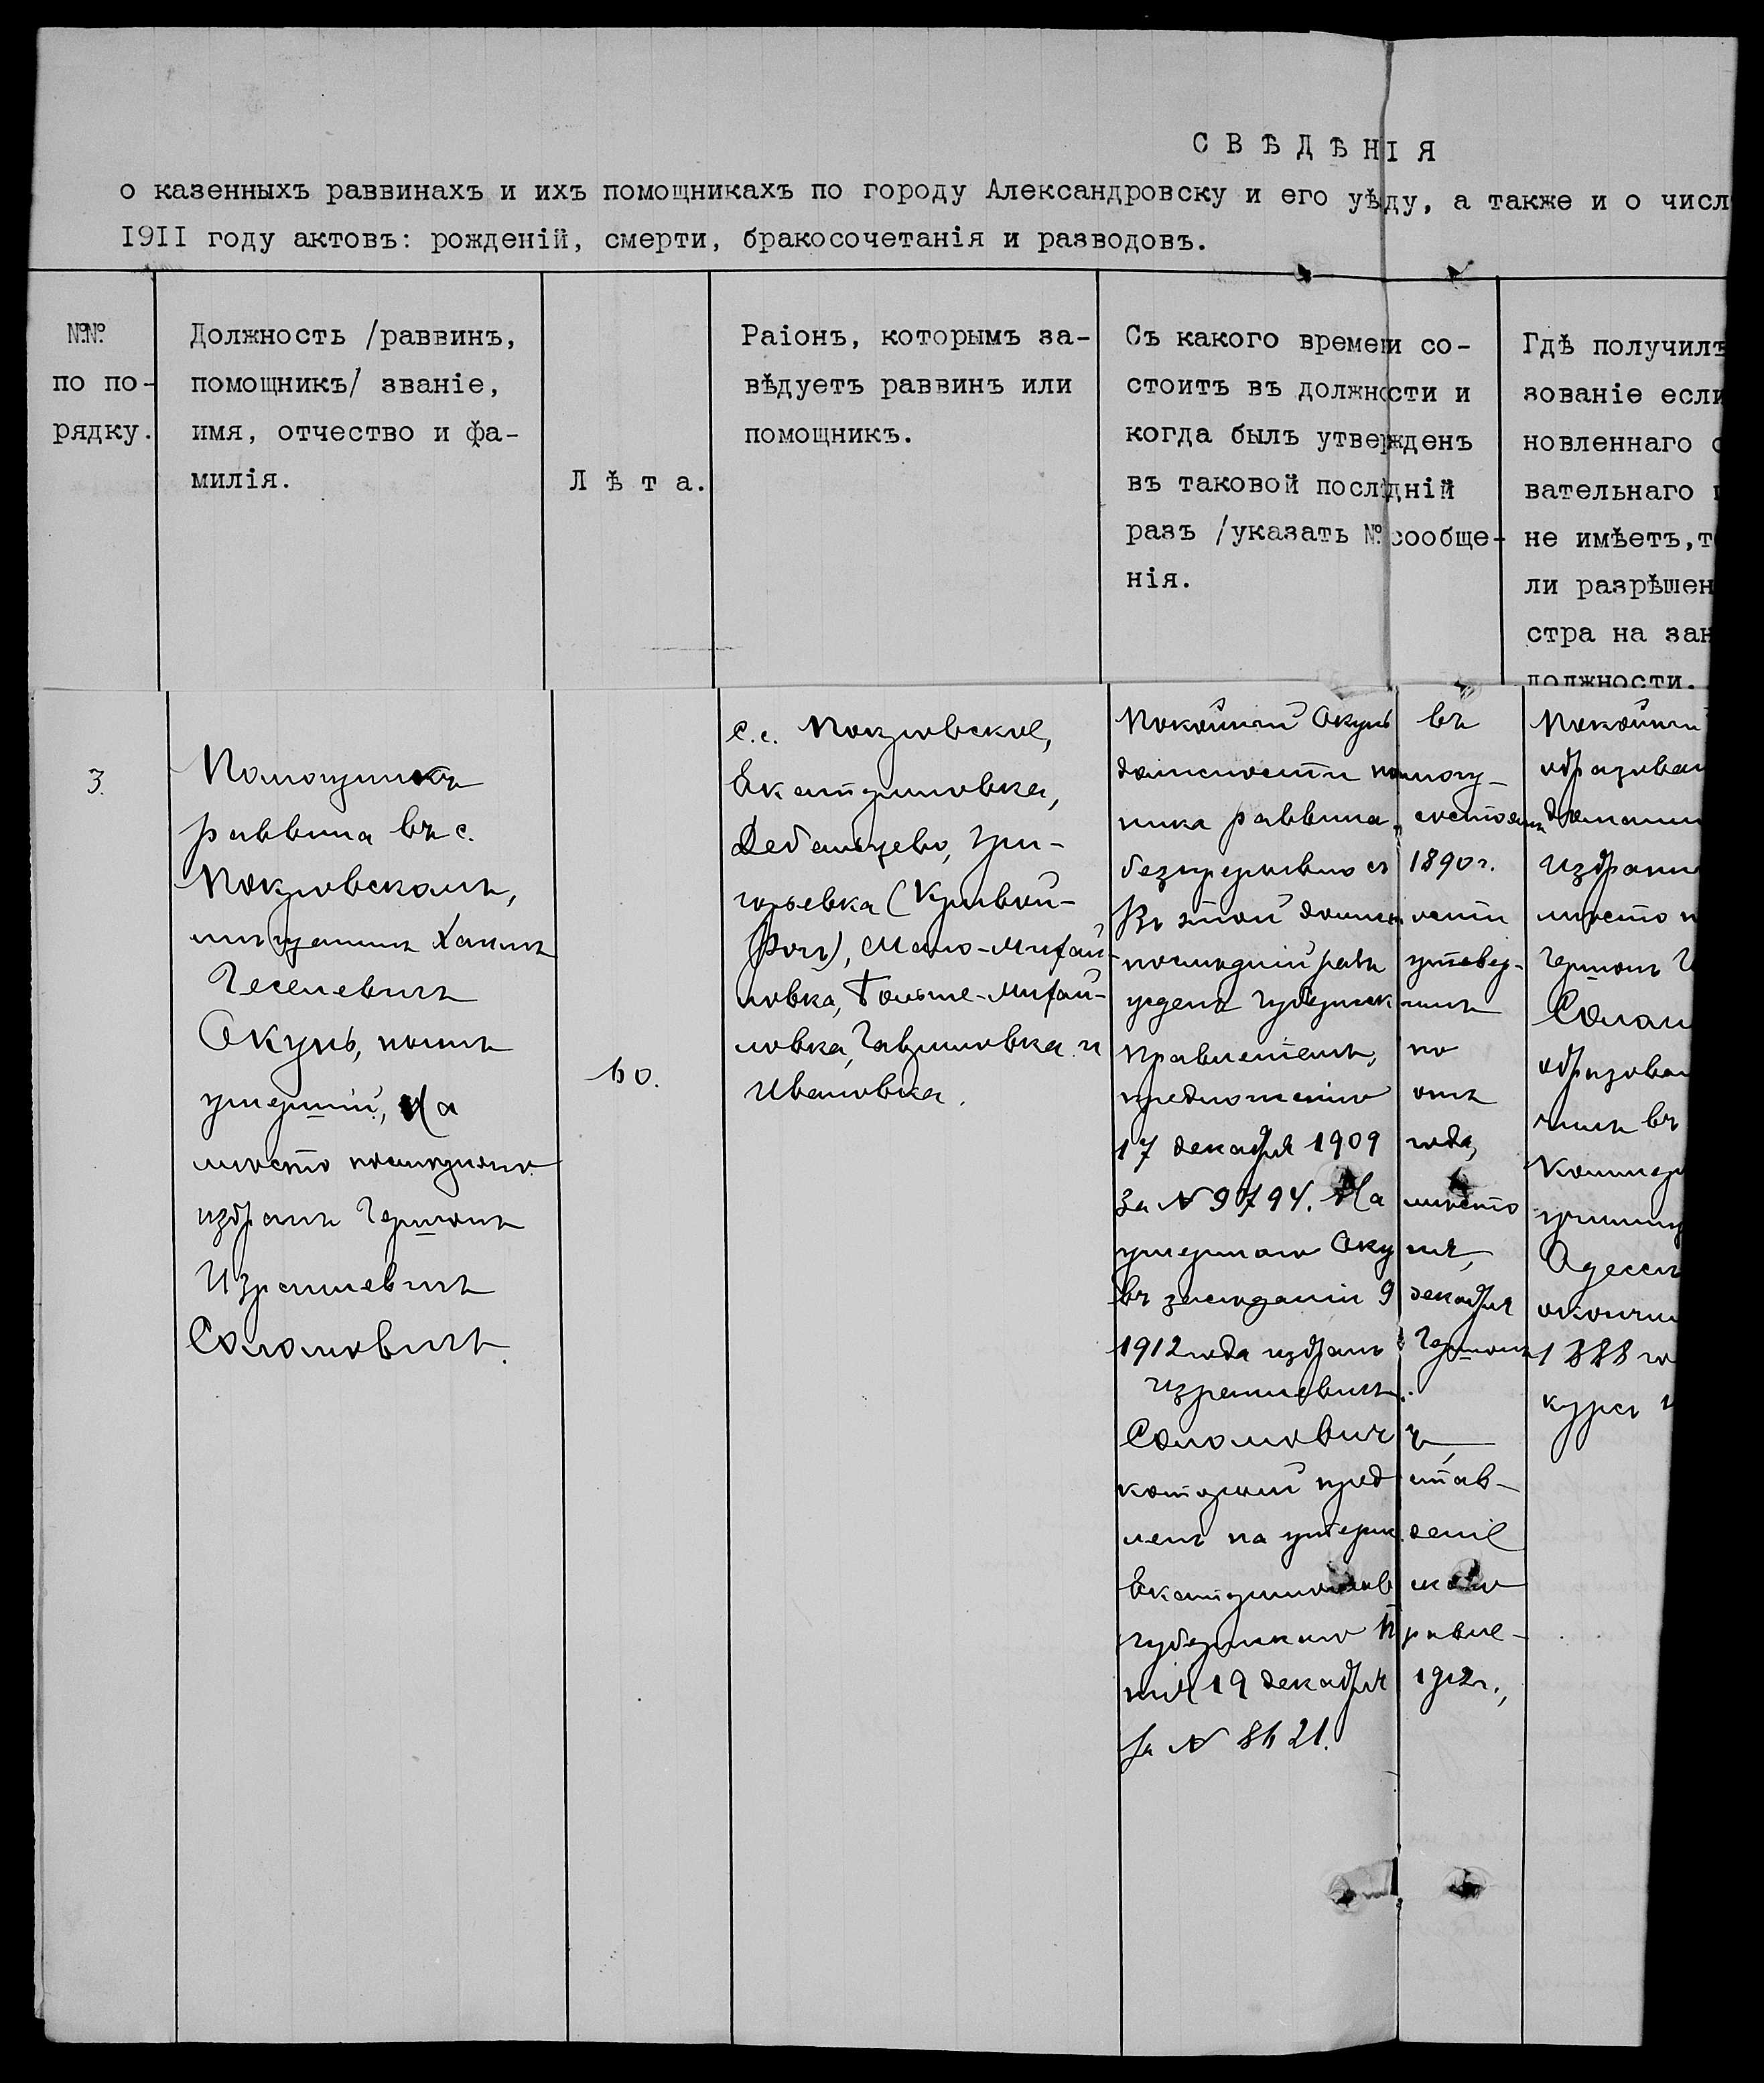 СВѢДѢНІЯ
о казенныхъ раввинахъ и ихъ помощникахъ по городу Александровску и его уѣду, а также и о числ
1911 году актовъ: рожденій, смерти, бракосочетанія и разводовъ.
№№
по по-
рядку.
Должность /раввинъ,
помощникъ/ званіе,
имя, отчество и фа-
милія.
Лѣта.
Раіонъ, которымъ за-
вѣдуетъ раввинъ или
помощникъ.
Съ какого времени со-
стоитъ въ должности и
когда былъ утвержденъ
въ таковой послѣдній
разъ /указать № сообще-
нія.
Гдѣ получилъ
зованіе если
новленнаго о
вательнаго
не имѣетъ, т
ли разрѣшен
стра на зан
должности.
3.
Помощникъ
раввина въ с.
Покровскомъ,
мѣщанинъ Хаимъ
Геселевичъ
Окунь, нынѣ
умершій, На
мѣсто послѣдняго
избранъ Гершонъ
Израилевичъ
Соломовичъ.
60.
с.с. Покровское,
Екатериновка,
Дебальцево, Гри-
горьевка (Кривой-
Рогъ), Мало-Михай-
ловка, Больше-Михай-
ловка, Гавриловка и
Ивановка.
Покойный Окунь въ
должности помощ-
ника раввина состоялъ
безпрерывно съ 1890 г.
Въ этой должности
послѣдній разъ утвер-
жденъ Губернскимъ
Правленіемъ, по
предложенію отъ
17 декабря 1909 года,
за № 9794. На мѣсто
умершаго Окуня,
въ засѣданіи 9 декабря
1912 года избранъ Гершонъ
Израилевичъ
Соломовичъ,
который представ-
ленъ на утвержденіе
Екатеринославскаго
Губернскаго Правле-
нія 19 декабря 1912 г.,
за № 8621.
Покойный
образован
домашн
Избранн
мѣсто
Гершонъ И
Солом
образован
чилъ въ
Коммер
училищ
Одессѣ
окончи
1888 го
курсъ